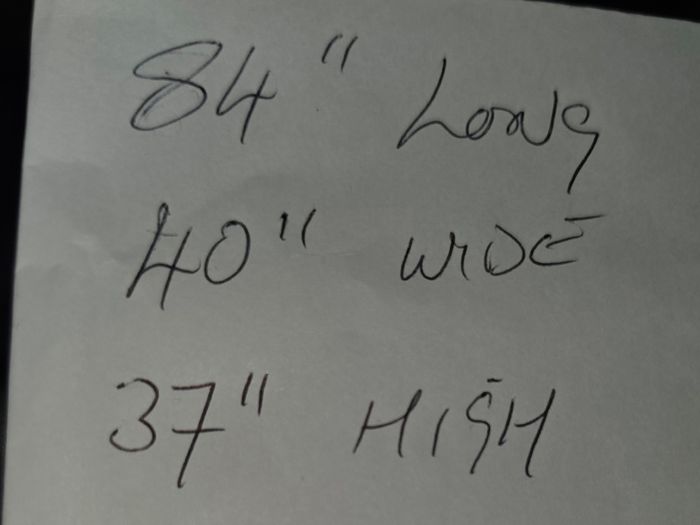 84" Long
40" WIDE
37" HIGH